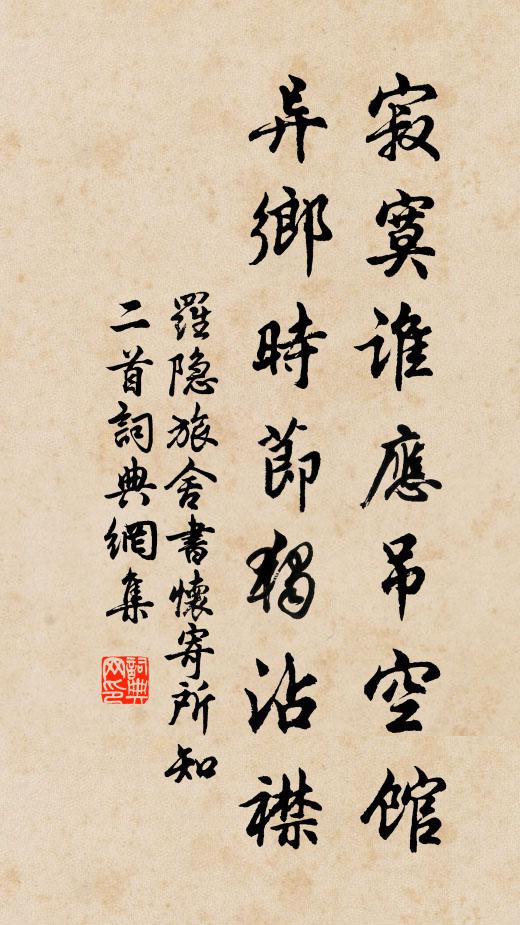 寂寞誰應吊空館
异鄉時節獨沾襟
羅隐旅舍書懷寄所知
二首詞典網集
詞典网印